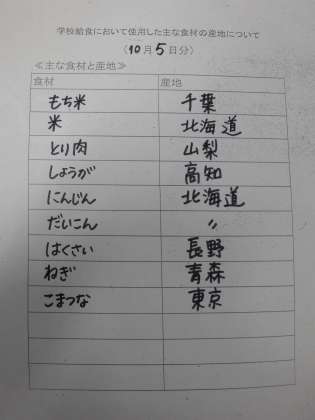 学校給食において使用した主な食材の産地について
(10月5日分)
≪主な食材と産地≫
食材 産地
もち米 千葉
米 北海道
とり肉 山梨
しょうが 高知
にんじん 北海道
だいこん 〃
はくさい 長野
ねぎ 青森
こまつな 東京